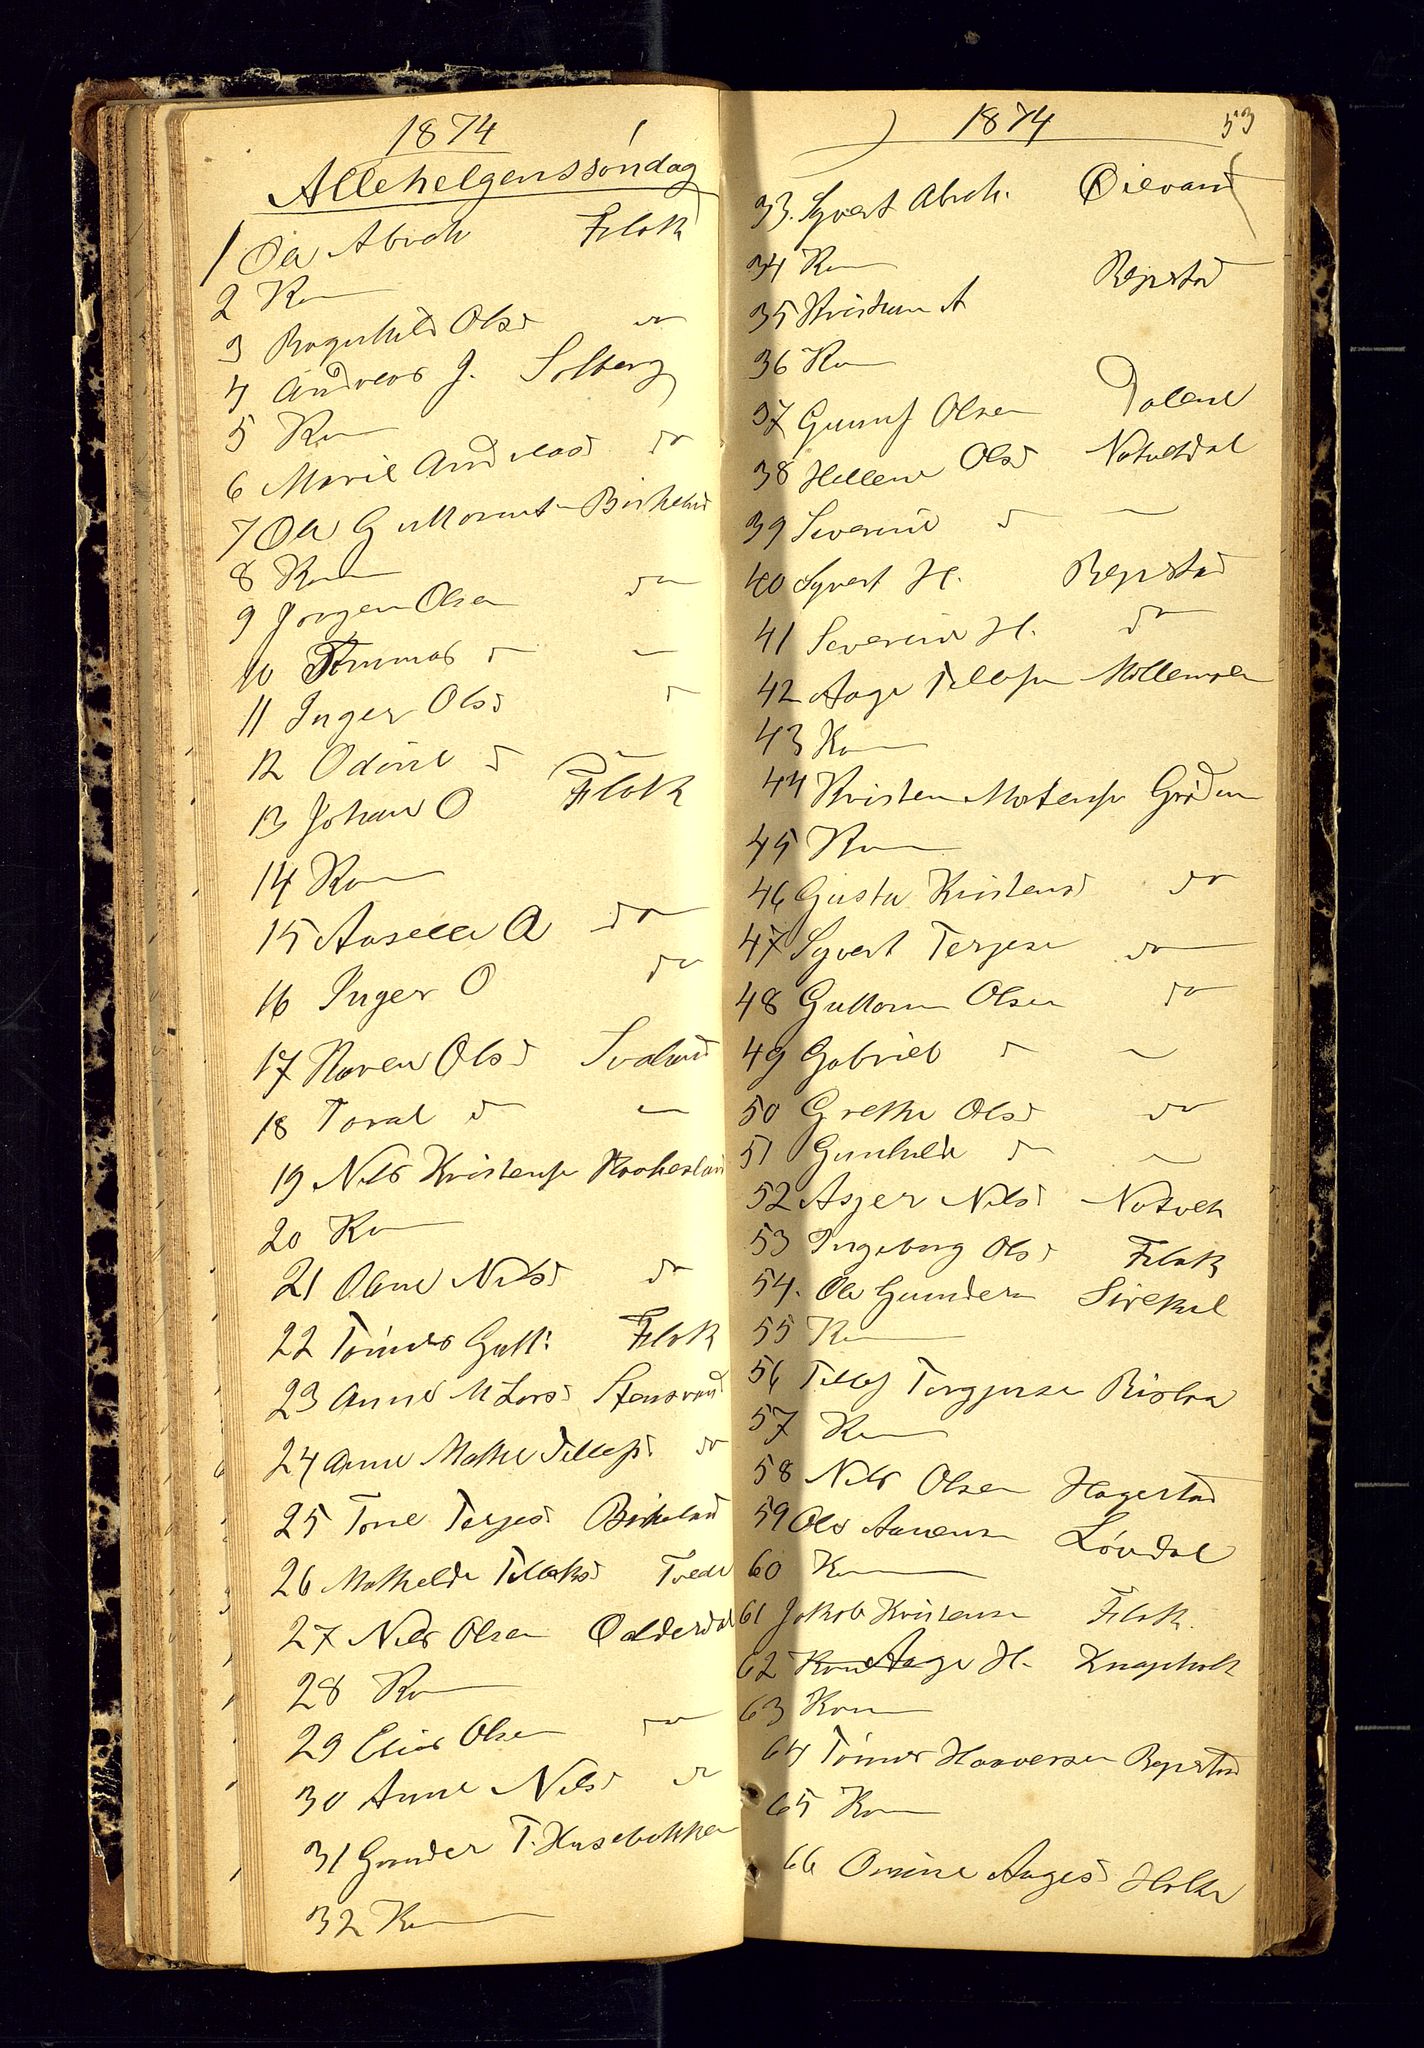 1874
Allehelgenssøndag
1 Ole Abrah Filak
2 Kn
3 Ragnhild Olsd do
4 Andreas J. Solberg
5 Kn
6 Marie Andreasd do
7 Ole Guttormsen Birkeland
8 Kn
9 Jørgen Olsen do
10 Tommas d —
11 Inger Olsd d
12 Odine d —
13 Johan O Filak
14 Kn
15 Aaselle A do
16 Inger O do
17 Karen Olsd Svaland
18 Toral d —
19 Nils Kristensen
20 Kn
21 Oline Nilsd do
22 Tønnes Gutt: Filak
23 Anne M Larsd Stensvand
24 Anne Mathe Tellefsd do
25 Tone Terjesd Birkeland
26 Mathilde Tellefsd Tvede
27 Nils Olsen
28 Kn
29 Elias Olsen do
30 Anne Nilsd do
31 Gunder T. Husebokken
32 Kn
1874 53
33. Syvert Abrah. Øievand
34 Kn
35 Kristian A Repstad
36 Kn
37 Gunuf Olsen Dalene
38 Hellene Olsd
39 Severine d —
40 Syvert H. Repstad
41 Severine H. do
42 Aage Tellefsen
43 Kn
44 Kristen Mortensen
45 Kn
46 Gusta Kristensd do
47 Syvert Terjesen do
48 Guttorm Olsen do
49 Gabriel d —
50 Grethe Olsd do
51 Gunhilde d —
52 Asjer Nilsd
53 Ingeborg Olsd Filak
54. Ole Gundersen Sirekil
55 Kn
56 Tellef Torgjusen
57 Kn
58 Nils Olsen Hagestad
59 Ole Aanensen Løvdal
60 Kn
61 Jakob Kristensen Filak.
62 Kone Aage H. Knapholt
63 Kone
64 Tønnes Haaversen Repstad
65 Kn
66 Omine Aagesd Holte